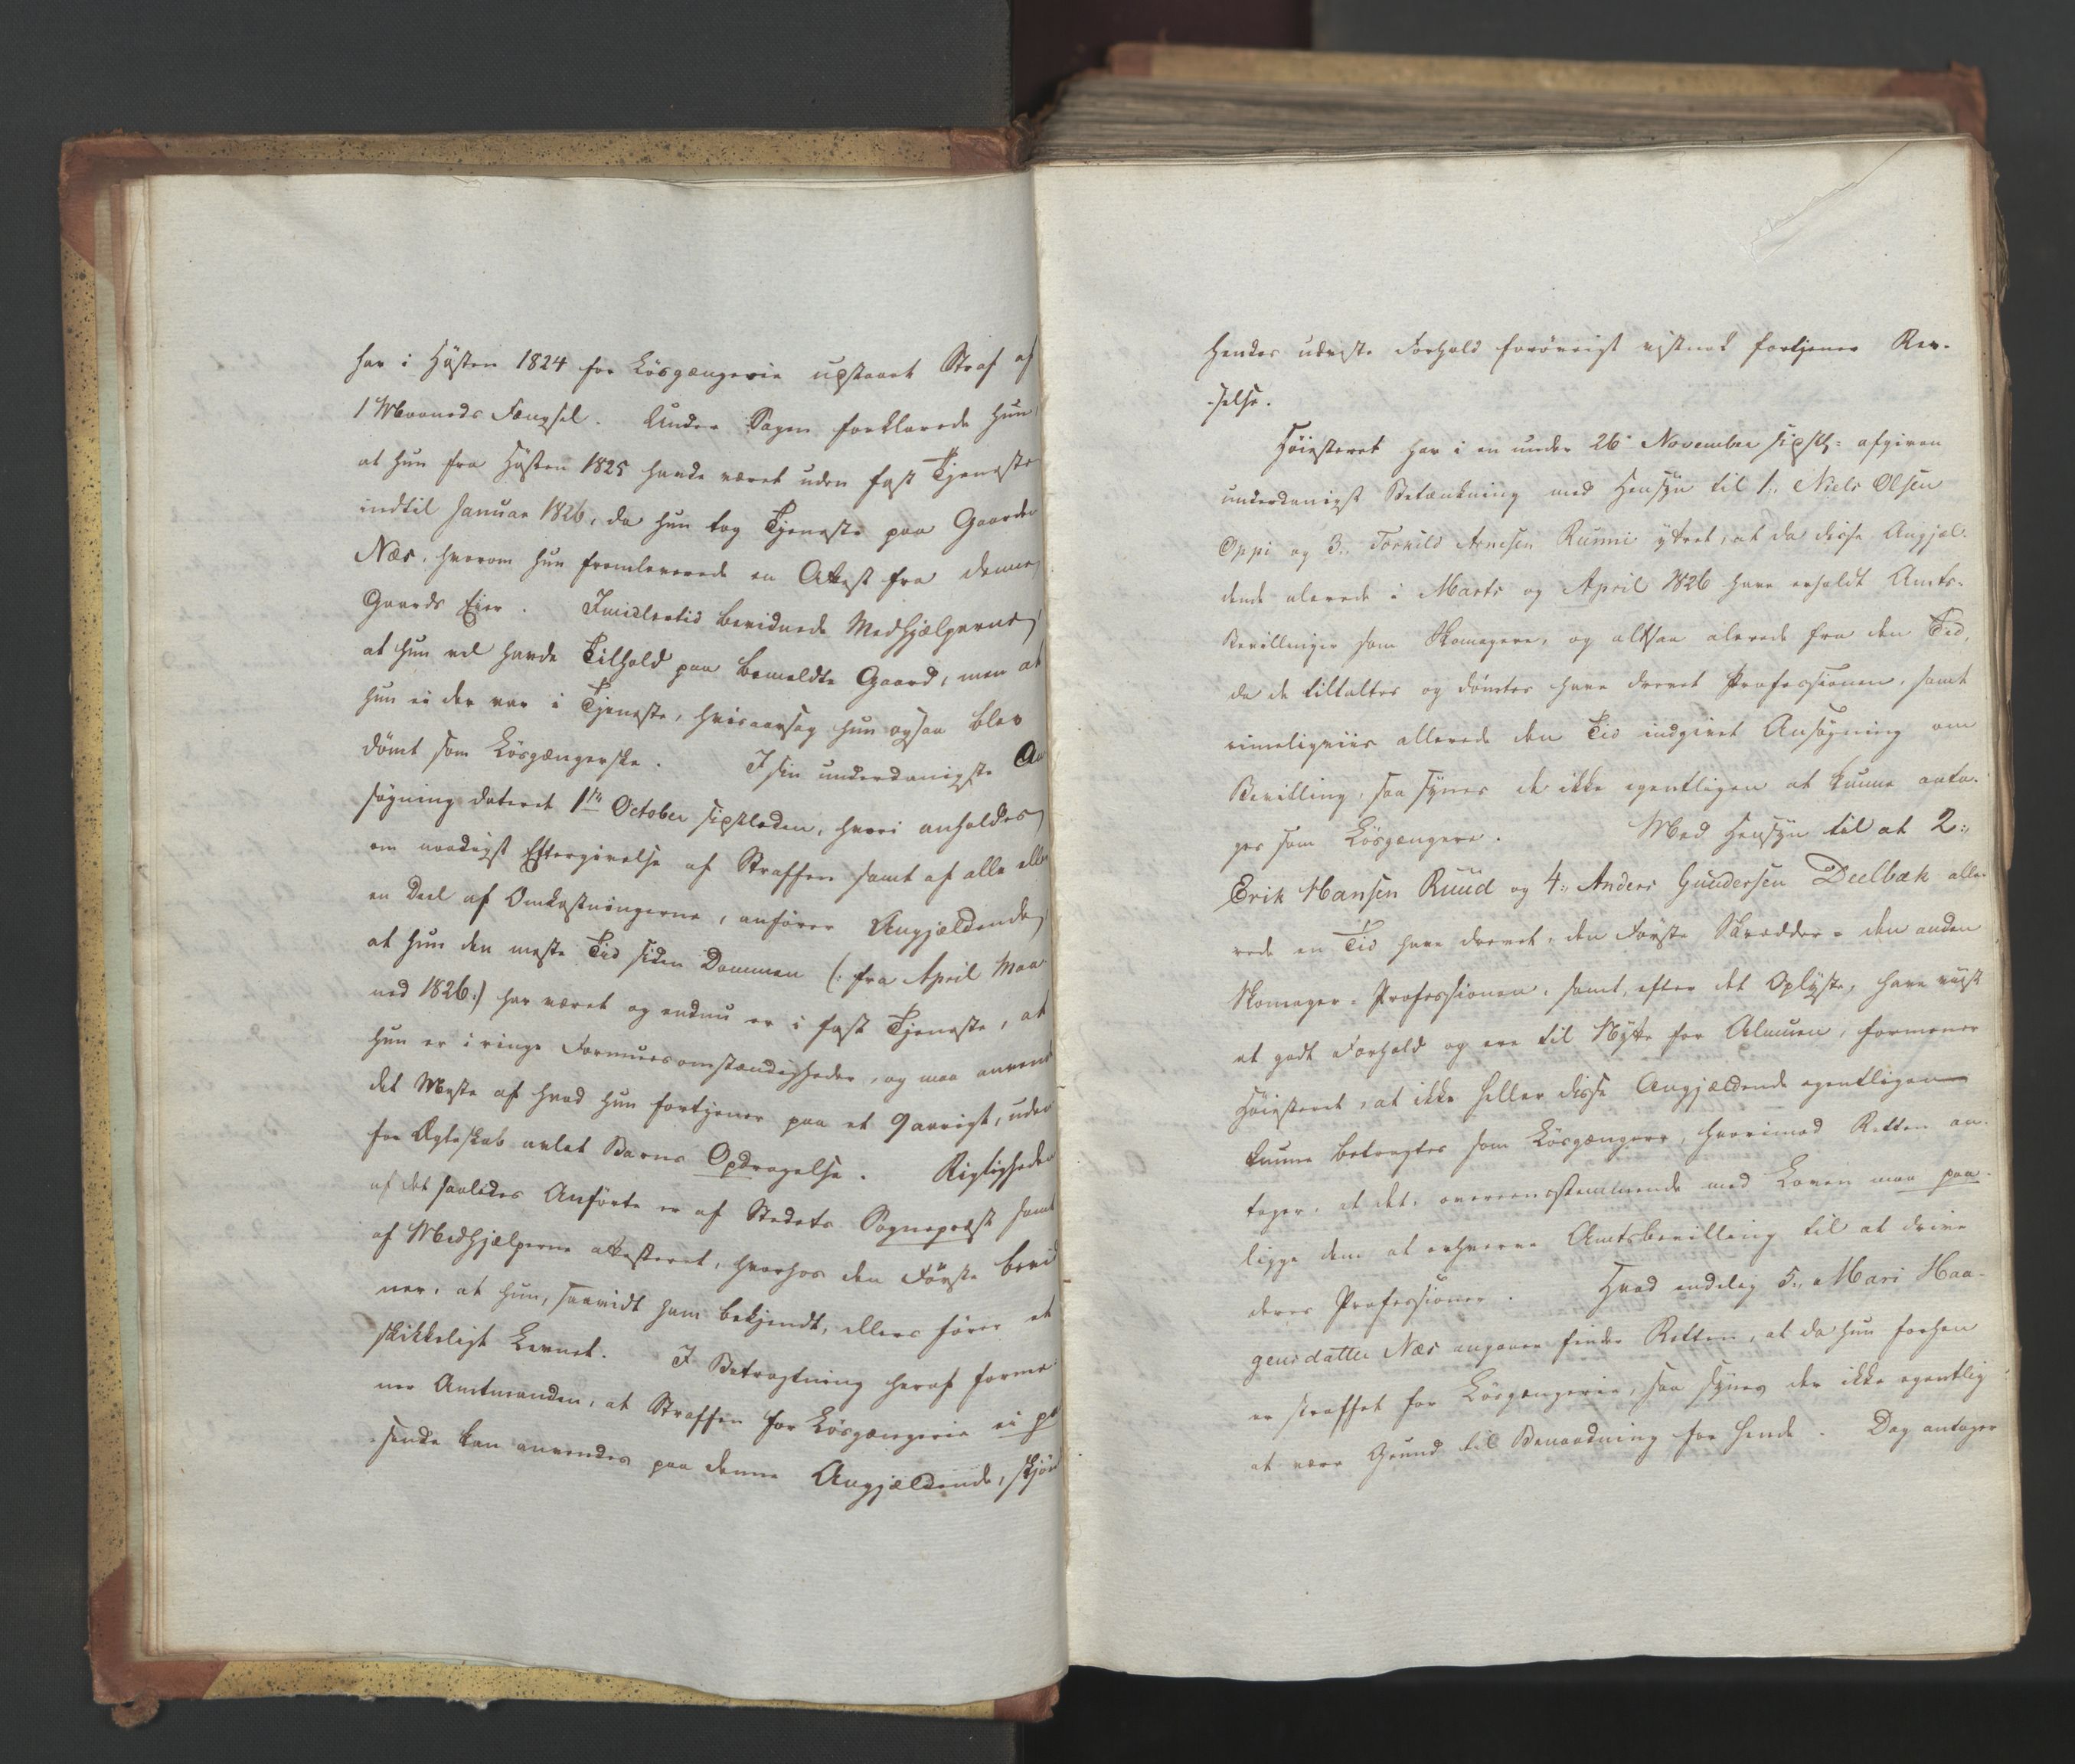 har i Høsten 1824 for Løsgængerie udstaaet Straf af
1 Maaneds Fængsel. Under Sagen forklarede hun,
at hun fra Høsten 1825 havde været uden fast Tjeneste
indtil Januar 1826, da hun tog Tjeneste paa Gaarden
Næs, hvorom hun fremleverede en Attest fra denne
Gaards Eier. Imidlertid bevidnede Medhjælperne,
at hun vel havde Tilhold paa bemeldte Gaard, men at
hun ei der var i Tjeneste, hvisaarsag hun ogsaa blev
dømt som Løsgængerske. I sin underdanigste An
søgning dateret 1ste October sidstleden, hvori anholdes
om naadigst Eftergivelse af Straffen samt af alle eller
en Deel af Omkostningerne, anfører Angjældende,
at hun den meste Tid siden Dommen (: fra April Maa-
ned 1826 :) har været og endnu er i fast Tjeneste, at
hun er i ringe Formuesomstændigheder, og maa anvende
det Meste af hvad hun fortjener paa et 9 aarigt, uden
for Ægteskab avlet Barns Opdragelse. Rigtigheden
af det saaledes Anførte er af Stedets Sognepræst samt
af Medhjælperne attesteret, hvorhos den Første bevid
ner, at hun, saavidt ham bekjendt, ellers fører et
skikkeligt Levnet. I Betragtning heraf forme-
ner Amtmanden, at Straffen for Løsgængerie ei pas
sende kan anvendes paa denne Angjældende, skjøndt
hendes udviste Forhold forøvrigt vistnok fortjener Rev-
selse.
Høiesteret har i en under 26 November sidstl: afgiven
underdanigst Betænkning med Hensyn til 1., Niels Olsen
Oppi og 3., Torkild Arnesen Runni ytret, at da disse Angjæl-
dende allerede i Marts og April 1826 have erholdt Amts-
Bevillinger som Skomagere, og altsaa allerede fra den Tid,
da de tiltaltes og dømtes have drevet Professionen, samt
rimeligviis allerede den Tid indgivet Ansøgning om
Bevilling, saa synes de ikke egentligen at kunne anta-
ges som Løsgængere. Med Hensyn til at 2.,
Erik Hansen Ruud og 4., Anders Gundersen Deelbæk alle-
rede en Tid have drevet, den Første Skrædder- den anden
Skomager-Professionen, samt, efter det Oplyste, have viist
et godt Forhold og ere til Nytte for Almuen, formener
Høiesteret, at ikke heller disse Angjældende egentligen
kunne betragtes som Løsgængere, hvorimod Retten an-
tager, at det, overeensstemmende med Loven maa paa-
ligge dem at erhverve Amtsbevilling til at drive
deres Professioner. Hvad endelig 5., Mari Haa-
gensdatter Næs angaaer finder Retten, at da hun forhen
er straffet for Løsgængerie, saa synes der ikke egentlig
at være Grund til Benaadning for hende. Dog antager